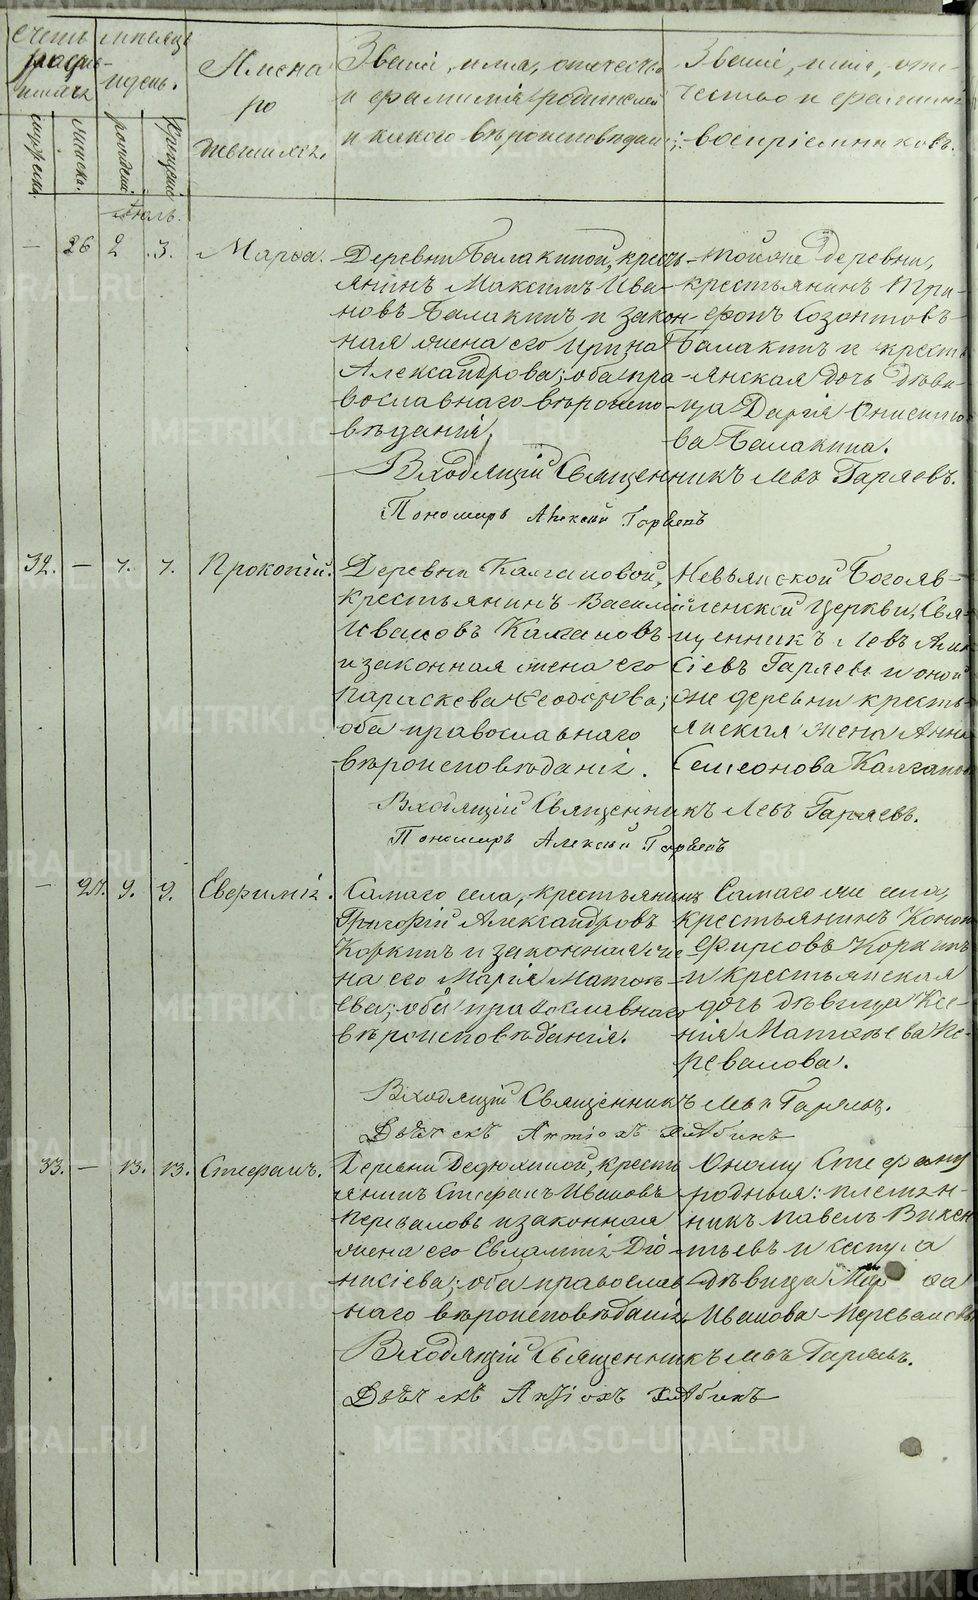 Счетъ родив-шихся
Мѣсяцъ и день.
Имена родившихся.
Званіе, имя, отчество
и фамилія родителей
и какого вѣроисповѣданія;
Званіе, имя, отчество и фамилія
воспріемниковъ.
мужеска.
женска.
рожденія
крещенія
Іюль.
— 26 2 3. Марѳа.
Деревни Балакиной, крестьянинъ Максимъ Ива-
новъ Балакинъ и закон-
ная жена его Ирина
Александрова; оба пра-
вославнаго вѣроиспо-
вѣданія.
Той же деревни,
крестьянинъ Три-
фонъ Созонтовъ
Балакинъ и кресть
янская дочь дѣви-
ца Дарія Онисимо
ва Балакина.
Входящій Священникъ Левъ Гаряевъ.
Пономарь Алексій
32. — 7. 7. Прокопій.
Деревни Калгановой,
крестьянинъ Василій
Ивановъ Калгановъ
и законная жена его
Параскева Ѳеодорова;
оба православнаго
вѣроисповѣданія.
Невьянской Богояв-
ленской Церкви, Свя-
щенникъ Левъ Алек
сіевъ Гаряевъ и оной
же деревни кресть-
янская жена Анна
Семеонова Калганова
Входящій Священникъ Левъ Гаряевъ.
Пономарь Алексій
— 27. 9. 9. Евфимія.
Самаго села, крестьянинъ
Григорій Александровъ
Коркинъ и законная же-
на его Марія Матвѣ-
ева; оба православнаго
вѣроисповѣданія.
Самаго же села,
крестьянинъ Конон
Фирсовъ Коркинъ
и крестьянская
дочь дѣвица Ксе-
нія Матвѣева Пе-
ревалова.
Входящій Священникъ Левъ Гаряевъ.
33. — 13. 13. Стефанъ.
Деревни Дедюхиной, кресть
янинъ Стефанъ Ивановъ
Переваловъ и законная
жена его Евлампія Діо-
нисіева; оба православ
наго вѣроисповѣданія,
Оному Стефану
родные: племян-
никъ Павелъ Викен
тьевъ и сестра
дѣвица Марѳа
Иванова Перевалова
Входящій Священникъ Левъ Гаряевъ.
METRIKI.GASO-URAL.RU